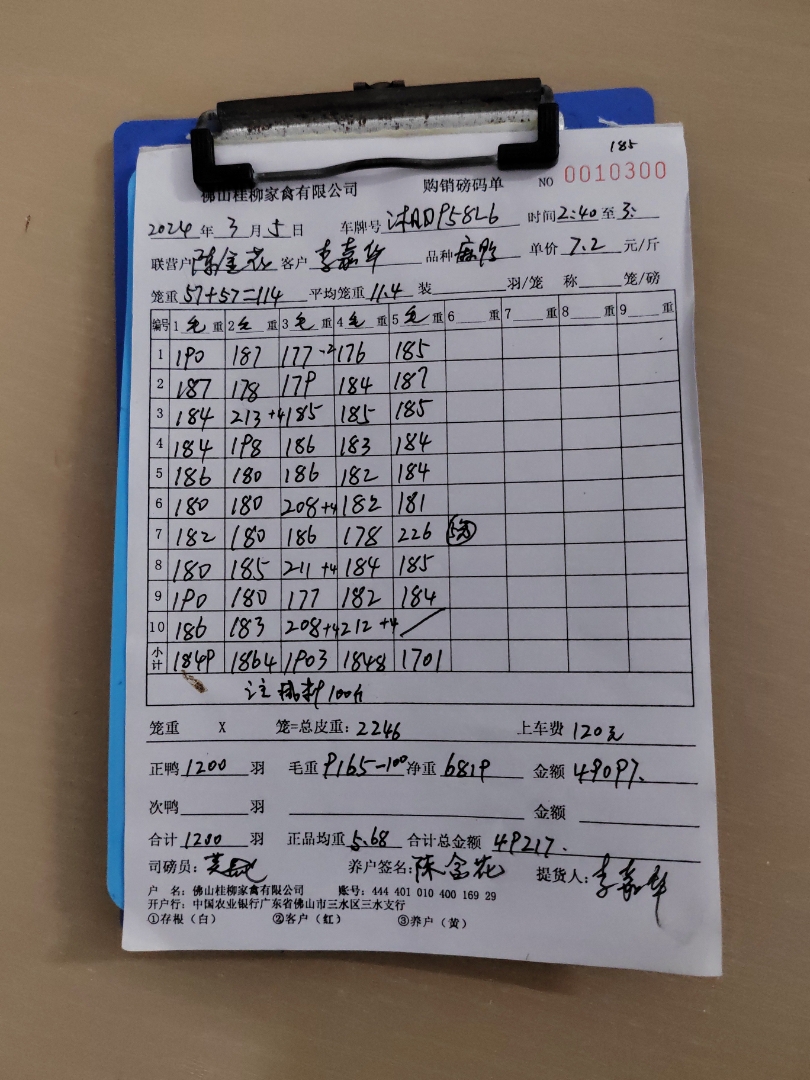 185
佛山桂柳家禽有限公司 购销磅码单 NO 0010300
2024年3月5日 车牌号 时间2:40至3:
联营户陈金花 客户李嘉华 品种麻鸭 单价7.2元/斤
笼重57+57=114 平均笼重11.4 装 羽/笼 称 笼/磅
编号 1毛重 2毛重 3毛重 4毛重 5毛重 6 重 7 重 8 重 9 重
1 190 187 177-2 176 185
2 187 178 179 184 187
3 184 213+4 185 185 185
4 184 198 186 183 184
5 186 180 186 182 184
6 180 180 208+4 182 181
7 182 180 186 178 226
8 180 185 211+4 184 185
9 190 180 177 182 184
10 186 183 208+4 212+4 /
小计 1849 1864 1903 1848 1701
注 料100斤
笼重 X 笼=总皮重:2246 上车费120元
正鸭1200羽 毛重9165-100 净重6819 金额49097.
次鸭 羽 金额
合计1200羽 正品均重5.68 合计总金额49217.
司磅员: 养户签名:陈金花 提货人:李嘉华
户 名:佛山桂柳家禽有限公司 账号:444 401 010 400 169 29
开户行:中国农业银行广东省佛山市三水区三水支行
①存根(白) ②客户(红) ③养户(黄)